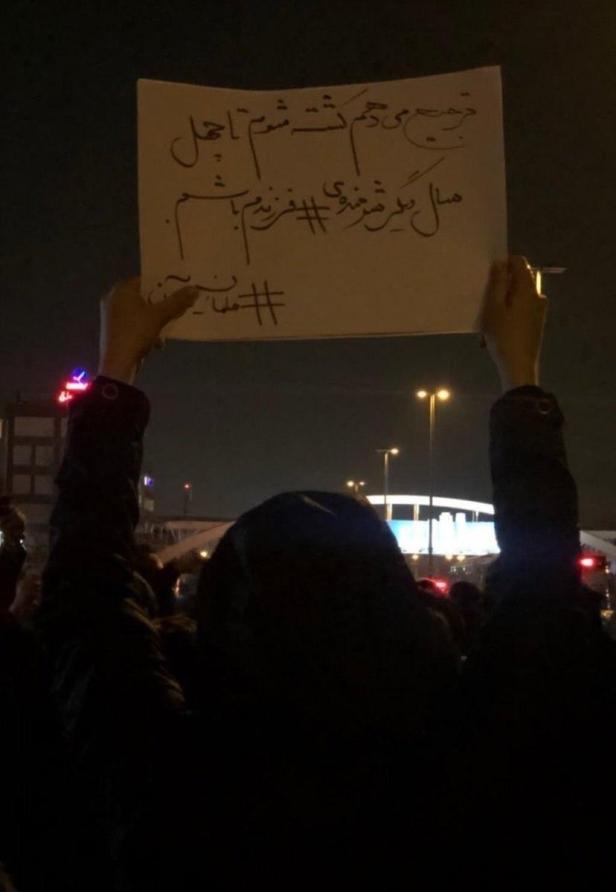 ترجیح می دهم کشته شوم تا چهل
سال دیگر شرمنده‌ی #فرزندم باشم.